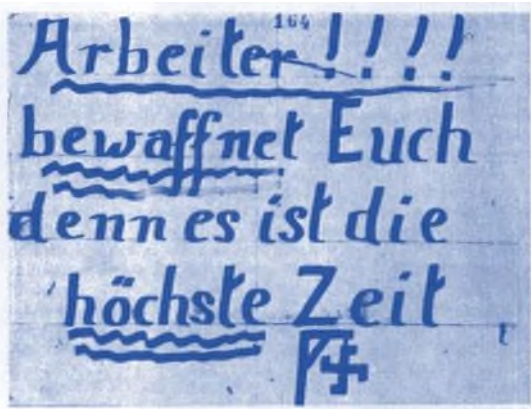 164
Arbeiter!!!!
bewaffnet Euch
denn es ist die
höchste Zeit